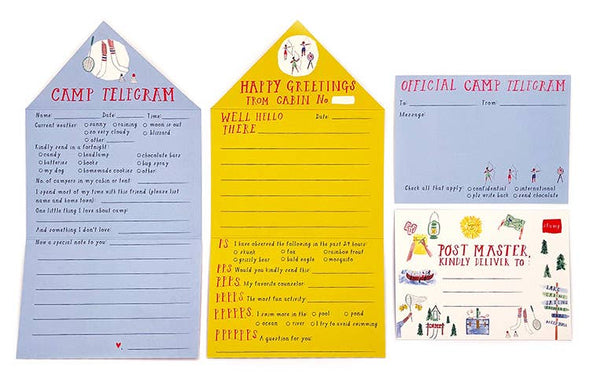 CAMP TELEGRAM
Name: Date: Time:
Current weather: sunny raining moon is out
so very cloudy blizzard
other
Kindly send in a fortnight:
candy headlamp chocolate bars
batteries books bug spray
my dog homemade cookies other
No. of campers in my cabin or tent
I spend most of my time with this friend (please list
name and home town)
One little thing I love about camp:
And something I don't love:
Now a special note to you
HAPPY GREETINGS
FROM CABIN No
WELL HELLO Date:
THERE
PS. I have observed the following in the past 24 hours:
skunk fox rainbow trout
grizzly bear bald eagle mosquito
PPS. Would you kindly send this:
PPPS. My favorite counselor:
PPPPS. The most fun activity
PPPPPS. I swim more in the pool pond
ocean river I try to avoid swimming
PPPPPPS. A question for you:
OFFICIAL CAMP TELEGRAM
To: From:
Message:
Check all that apply: confidential international
plz write back send chocolate
POST MASTER,
KINDLY DELIVER TO:
stamp
LAKE